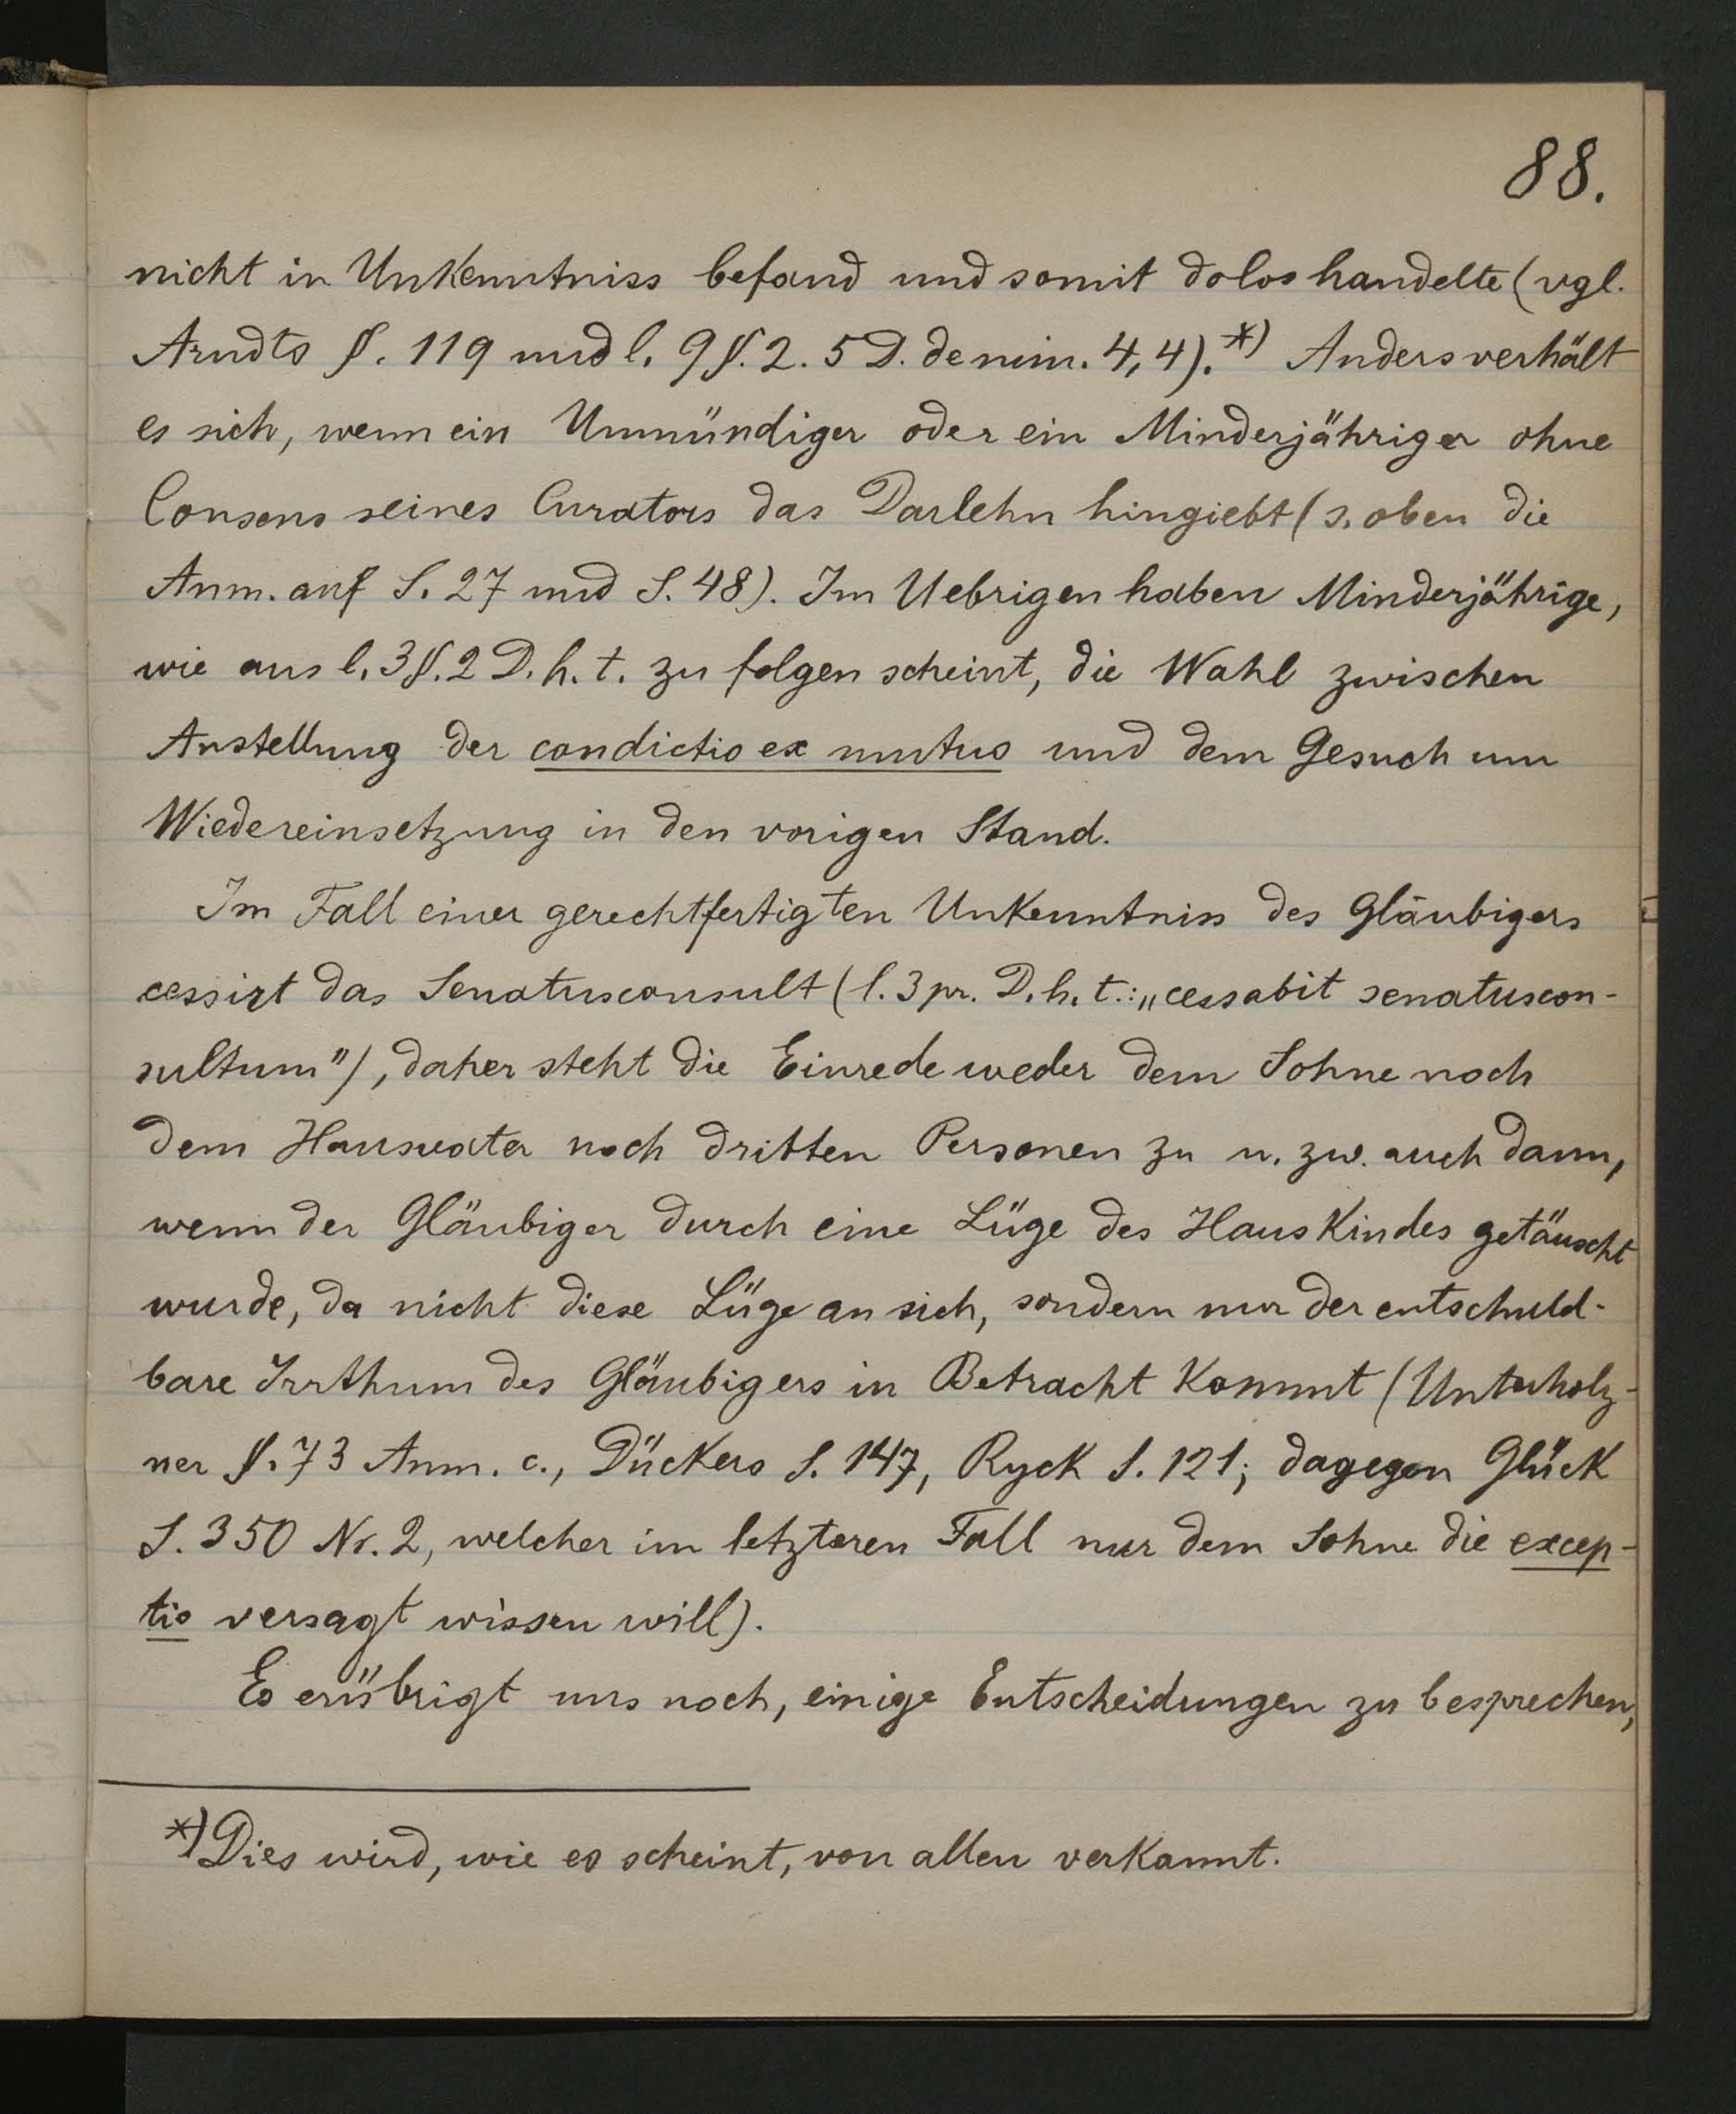 88.
nicht in Unkenntniss befand und somit dolos handelte (vgl.
Arndts §. 119 und l. 9 §. 2. 5 D. de min. 4, 4).*) Anders verhält
es sich, wenn ein Unmündiger oder ein Minderjähriger ohne
Consens seines Curators das Darlehn hingiebt (s. oben die
Anm. auf S. 27 und S. 48). Im Uebrigen haben Minderjährige,
wie aus l. 3 §. 2 D. h. t. zu folgen scheint, die Wahl zwischen
Anstellung der condictio ex mutuo und dem Gesuch um
Wiedereinsetzung in den vorigen Stand.
Im Fall einer gerechtfertigten Unkenntniss des Gläubigers
cessirt das Senatusconsult (l. 3 pr. D. h. t.: „cessabit senatuscon-
sultum"), daher steht die Einrede weder dem Sohne noch
dem Hausvater noch dritten Personen zu u. zw. auch dann,
wenn der Gläubiger durch eine Lüge des Hauskindes getäuscht
wurde, da nicht diese Lüge an sich, sondern nur der entschuld-
bare Irrthum des Gläubigers in Betracht kommt (Unterholz-
ner §. 73 Anm. c., Dückers S. 147, Ryck S. 121; dagegen Glück
S. 350 Nr. 2, welcher im letzteren Fall nur dem Sohne die excep-
tio versagt wissen will).
Es erübrigt uns noch, einige Entscheidungen zu besprechen,
*) Dies wird, wie es scheint, von allen verkannt.